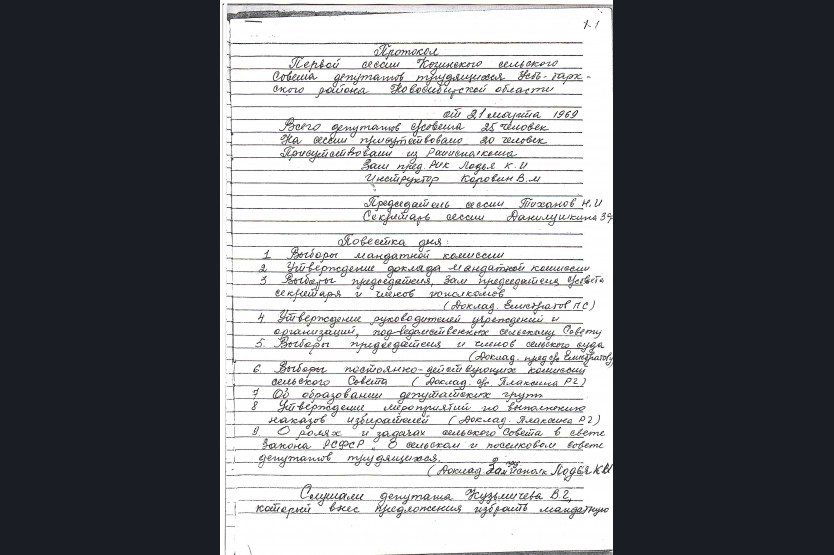 1.1
Протокол
Первой сессии Козинского сельского
Совета депутатов трудящихся Усть-тарк-
ского района Новосибирской области
от 21 марта 1969
Всего депутатов с/совета 25 человек
На сессии присутствовало 20 человек
Присутствовали из Райисполкома
Зам пред. РИК Лодья К.И
Инструктор Коровин В.М
Председатель сессии Тиханов Н.И
Секретарь сессии Данилушкина
Повестка дня:
1 Выборы мандатной комиссии
2. Утверждение доклада мандатной комиссии
3 Выборы председателя, зам председателя с/совета
секретаря и членов исполкомов
(Доклад. Елистратов П С)
4 Утверждение руководителей учреждений и
организаций, подведомственных сельскому Совету
5. Выборы председателя и членов сельского суда
(Доклад. предс Елистратов
6. Выборы постоянно-действующих комиссий
сельского Совета (Доклад. Плаксина Р Г)
7 Об образовании депутатских групп
8 Утверждение мероприятий по выполнению
наказов избирателей (Доклад. Плаксина Р Г)
9 О ролях и задачах сельского Совета в свете
Закона РСФСР О сельском и поселковом совете
депутатов трудящихся.
(Доклад. Зам пред исполк Лодья К.И
Слушали депутата Кузьмичева В Г,
который внес предложения избрать мандатную